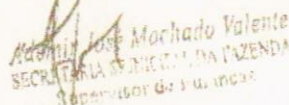 Ademir José Machado Valente
SECRETARIA MUNICIPAL DA FAZENDA
Supervisor de Finanças